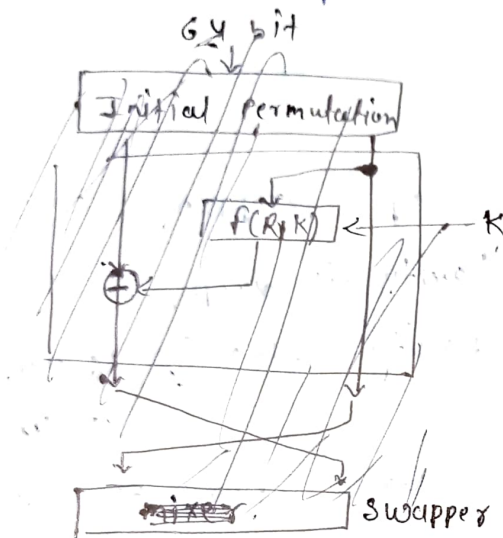 64 bit
Initial permutation
f(R, K)
K
Swapper